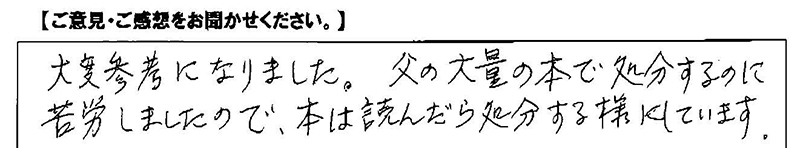 【ご意見・ご感想をお聞かせください。】
大変参考になりました。父の大量の本で処分するのに
苦労しましたので、本は読んだら処分する様にしています.